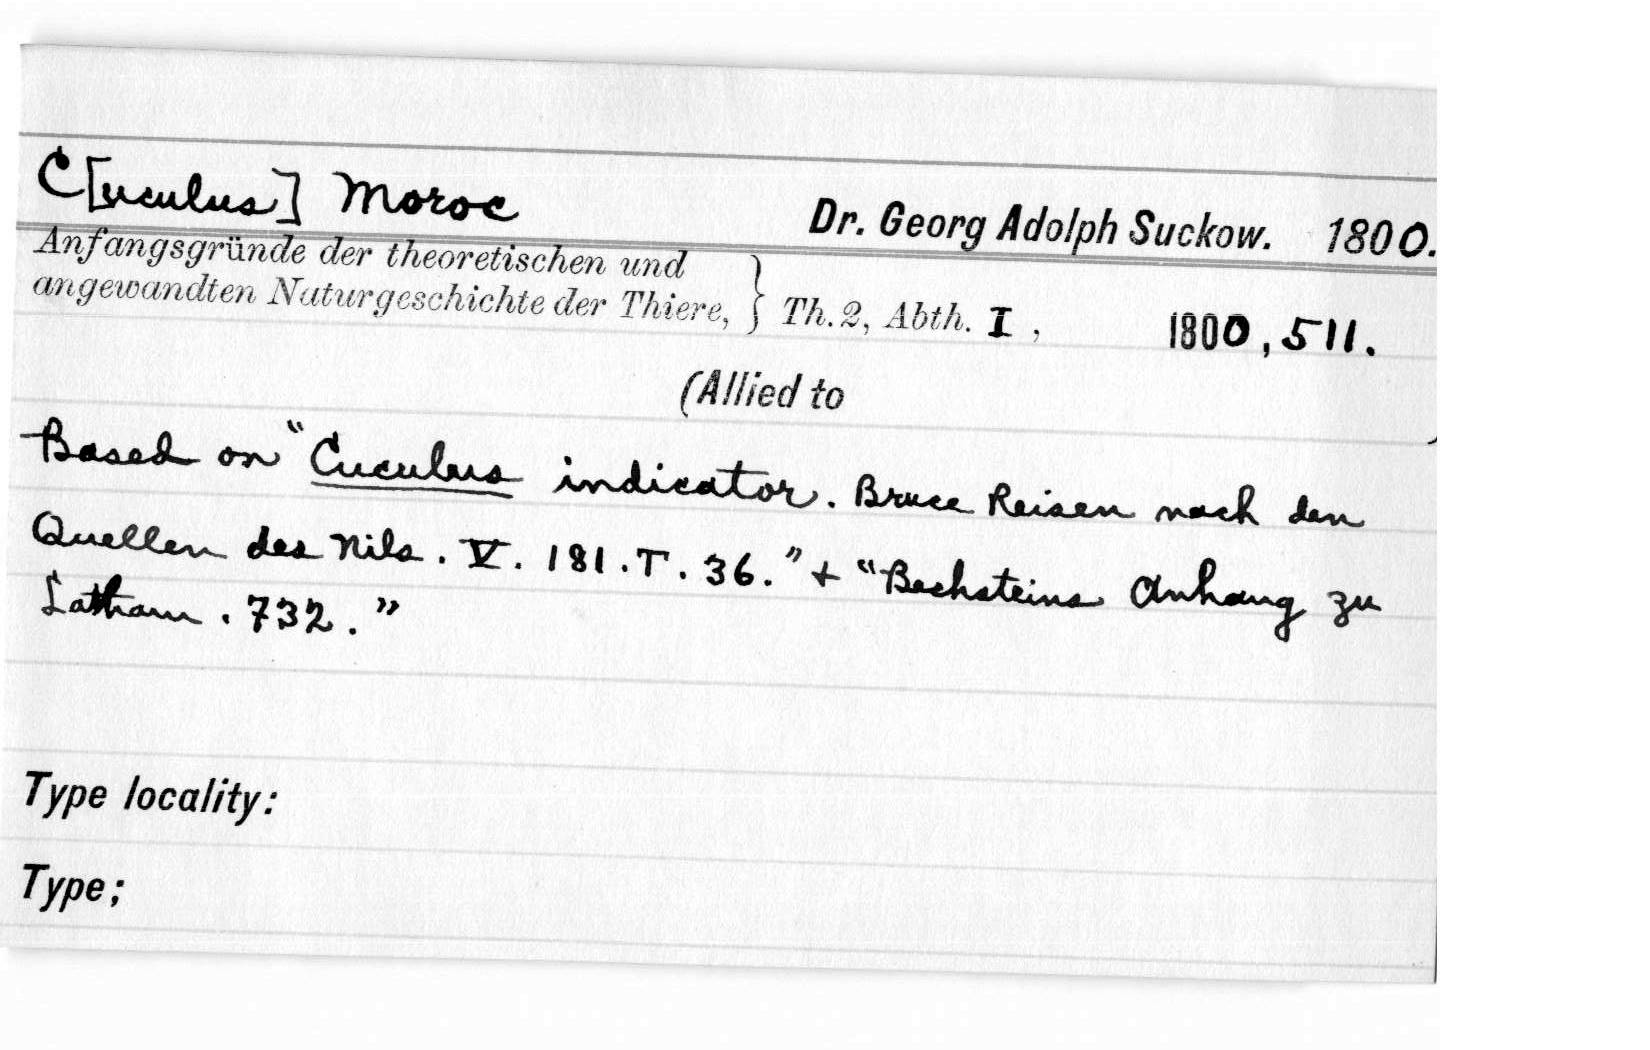 C[uculus] Moroc Dr. Georg Adolph Suckow. 1800.
Anfangsgründe der theoretischen und
angewandten Naturgeschichte der Thiere, } Th. 2, Abth. I, 1800, 511.
(Allied to )
Based on "Cuculus indicator. Bruce Reisen nach den
Quellen des Nils. V. 181. T. 36." + "Bechsteins Anhang zu
Latham. 732."
Type locality:
Type;